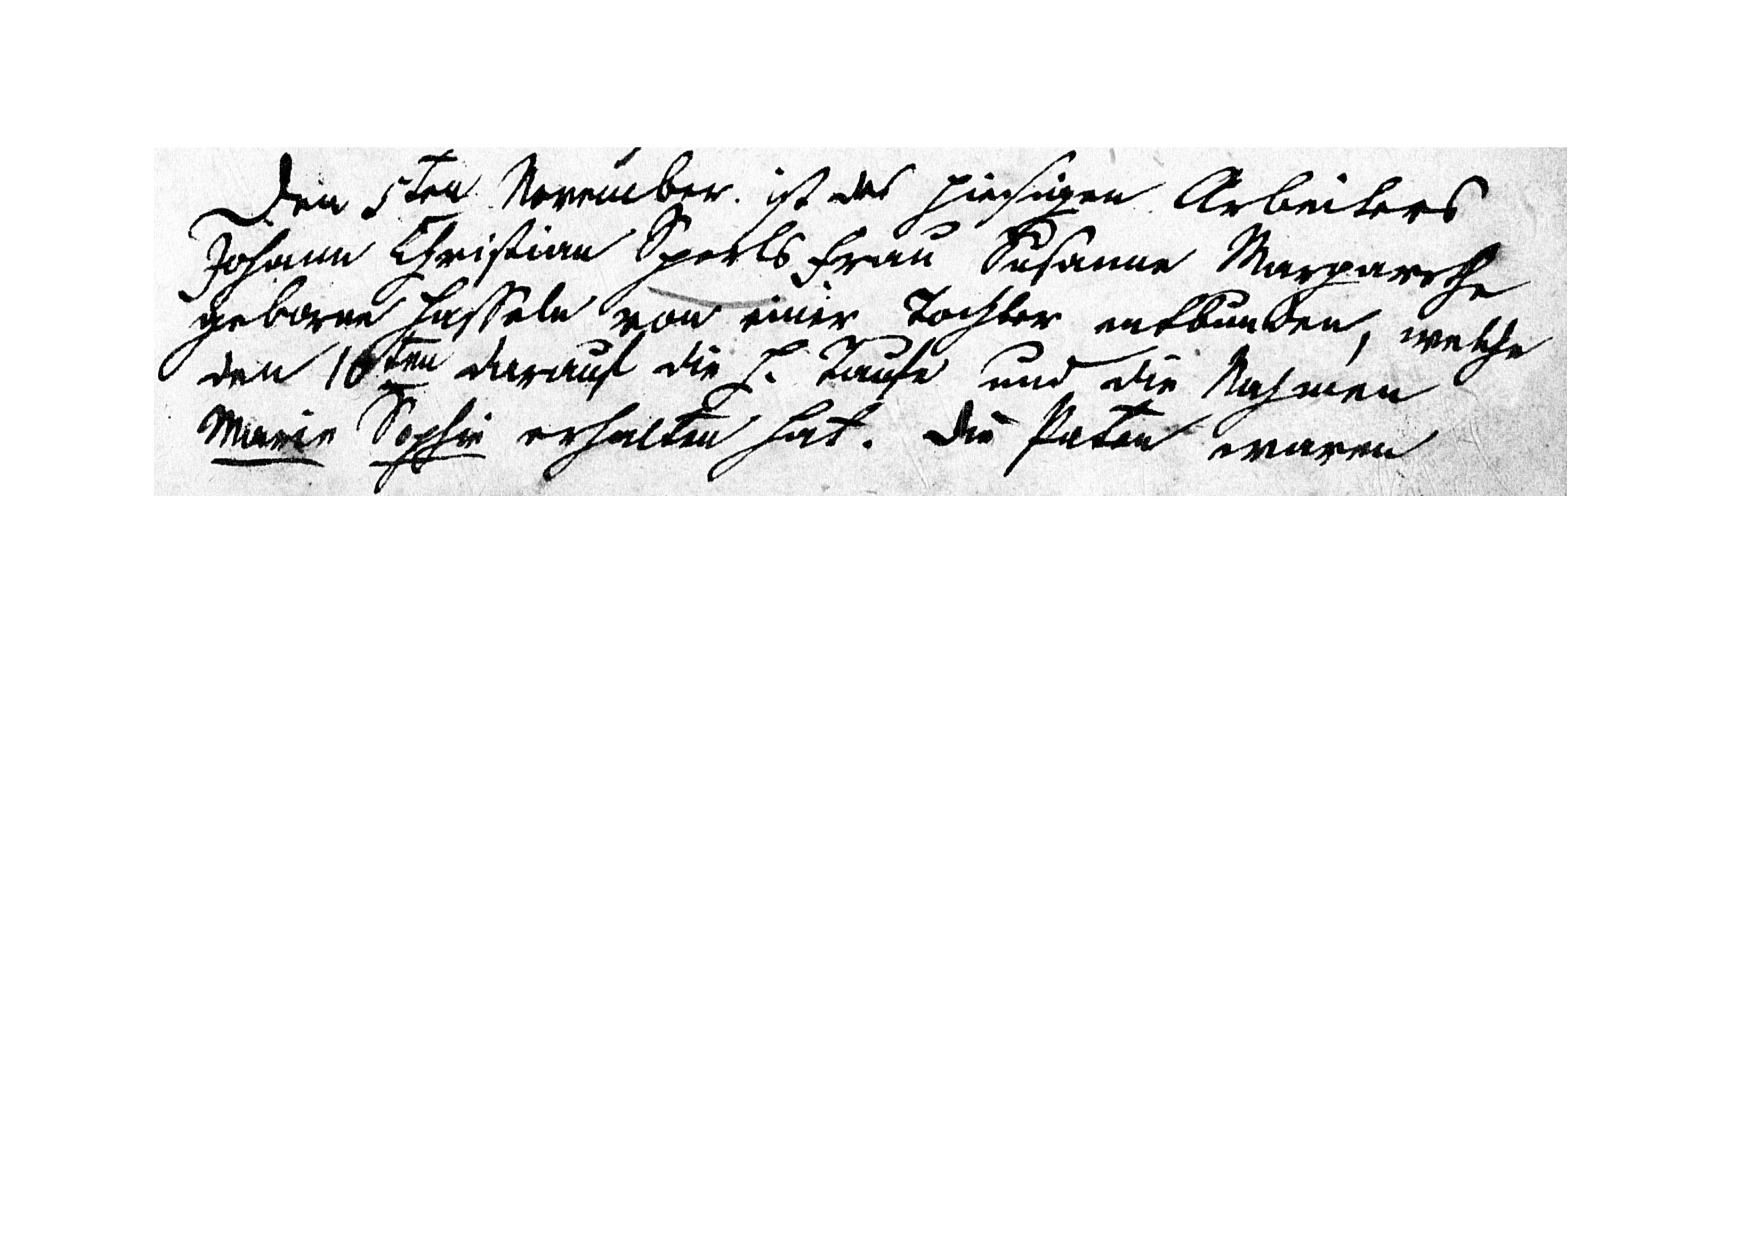 Den 5ten November. ist des hiesigen Arbeiters
Johann Christian Sperls Frau Susanne Margarethe
geborne Hasseln von einer Tochter entbunden, welche
den 10ten darauf die H. Taufe und die Nahmen
Marie Sophie erhalten hat. Die Paten waren